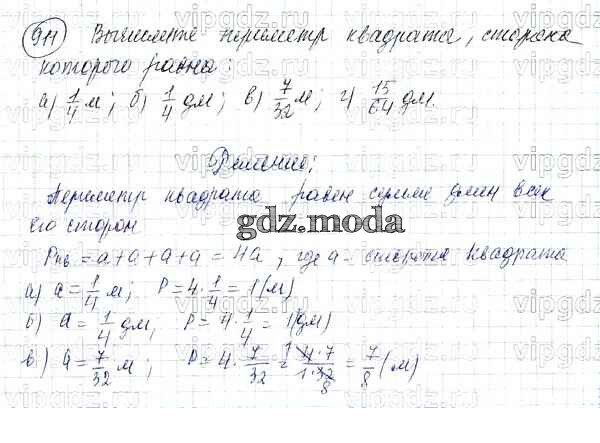 911 Вычислите периметр квадрата, сторона
которого равна:
а) 1/4 м; б) 1/4 дм; в) 7/32 м; г) 15/64 дм.
Решение:
Периметр квадрата равен сумме длин всех
его сторон
gdz.moda
Pкв = a+a+a+a = 4a, где a - сторона квадрата
а) a = 1/4 м; P = 4 · 1/4 = 1 (м)
б) a = 1/4 дм; P = 4 · 1/4 = 1 (дм)
в) a = 7/32 м; P = 4 · 7/32 = 4·7/1·32 = 7/8 (м)